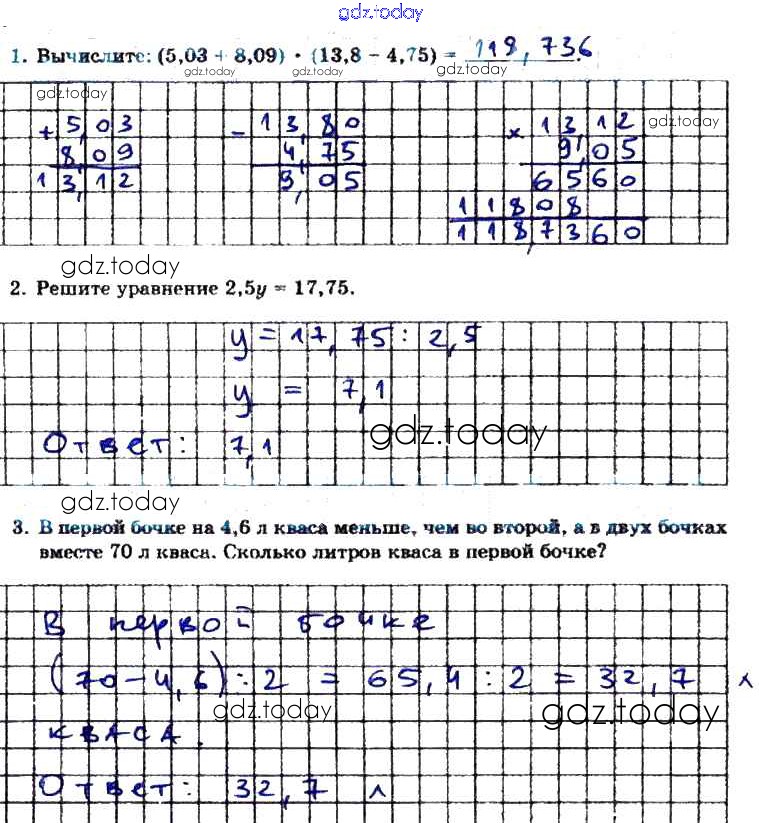 gdz.today
1. Вычислите: (5,03 + 8,09) · (13,8 − 4,75) = 118,736.
gdz.today gdz.today gdz.today
gdz.today
+ 5,03 − 13,80 × 13,12 gdz.today
8,09 4,75 9,05
13,12 9,05 6560
11808
118,7360
gdz.today
2. Решите уравнение 2,5y = 17,75.
y = 17,75 : 2,5
y = 7,1
Ответ: 7,1 gdz.today
gdz.today
3. В первой бочке на 4,6 л кваса меньше, чем во второй, а в двух бочках
вместе 70 л кваса. Сколько литров кваса в первой бочке?
В первой бочке
(70 − 4,6) : 2 = 65,4 : 2 = 32,7 л
gdz.today gdz.today
кваса.
Ответ: 32,7 л